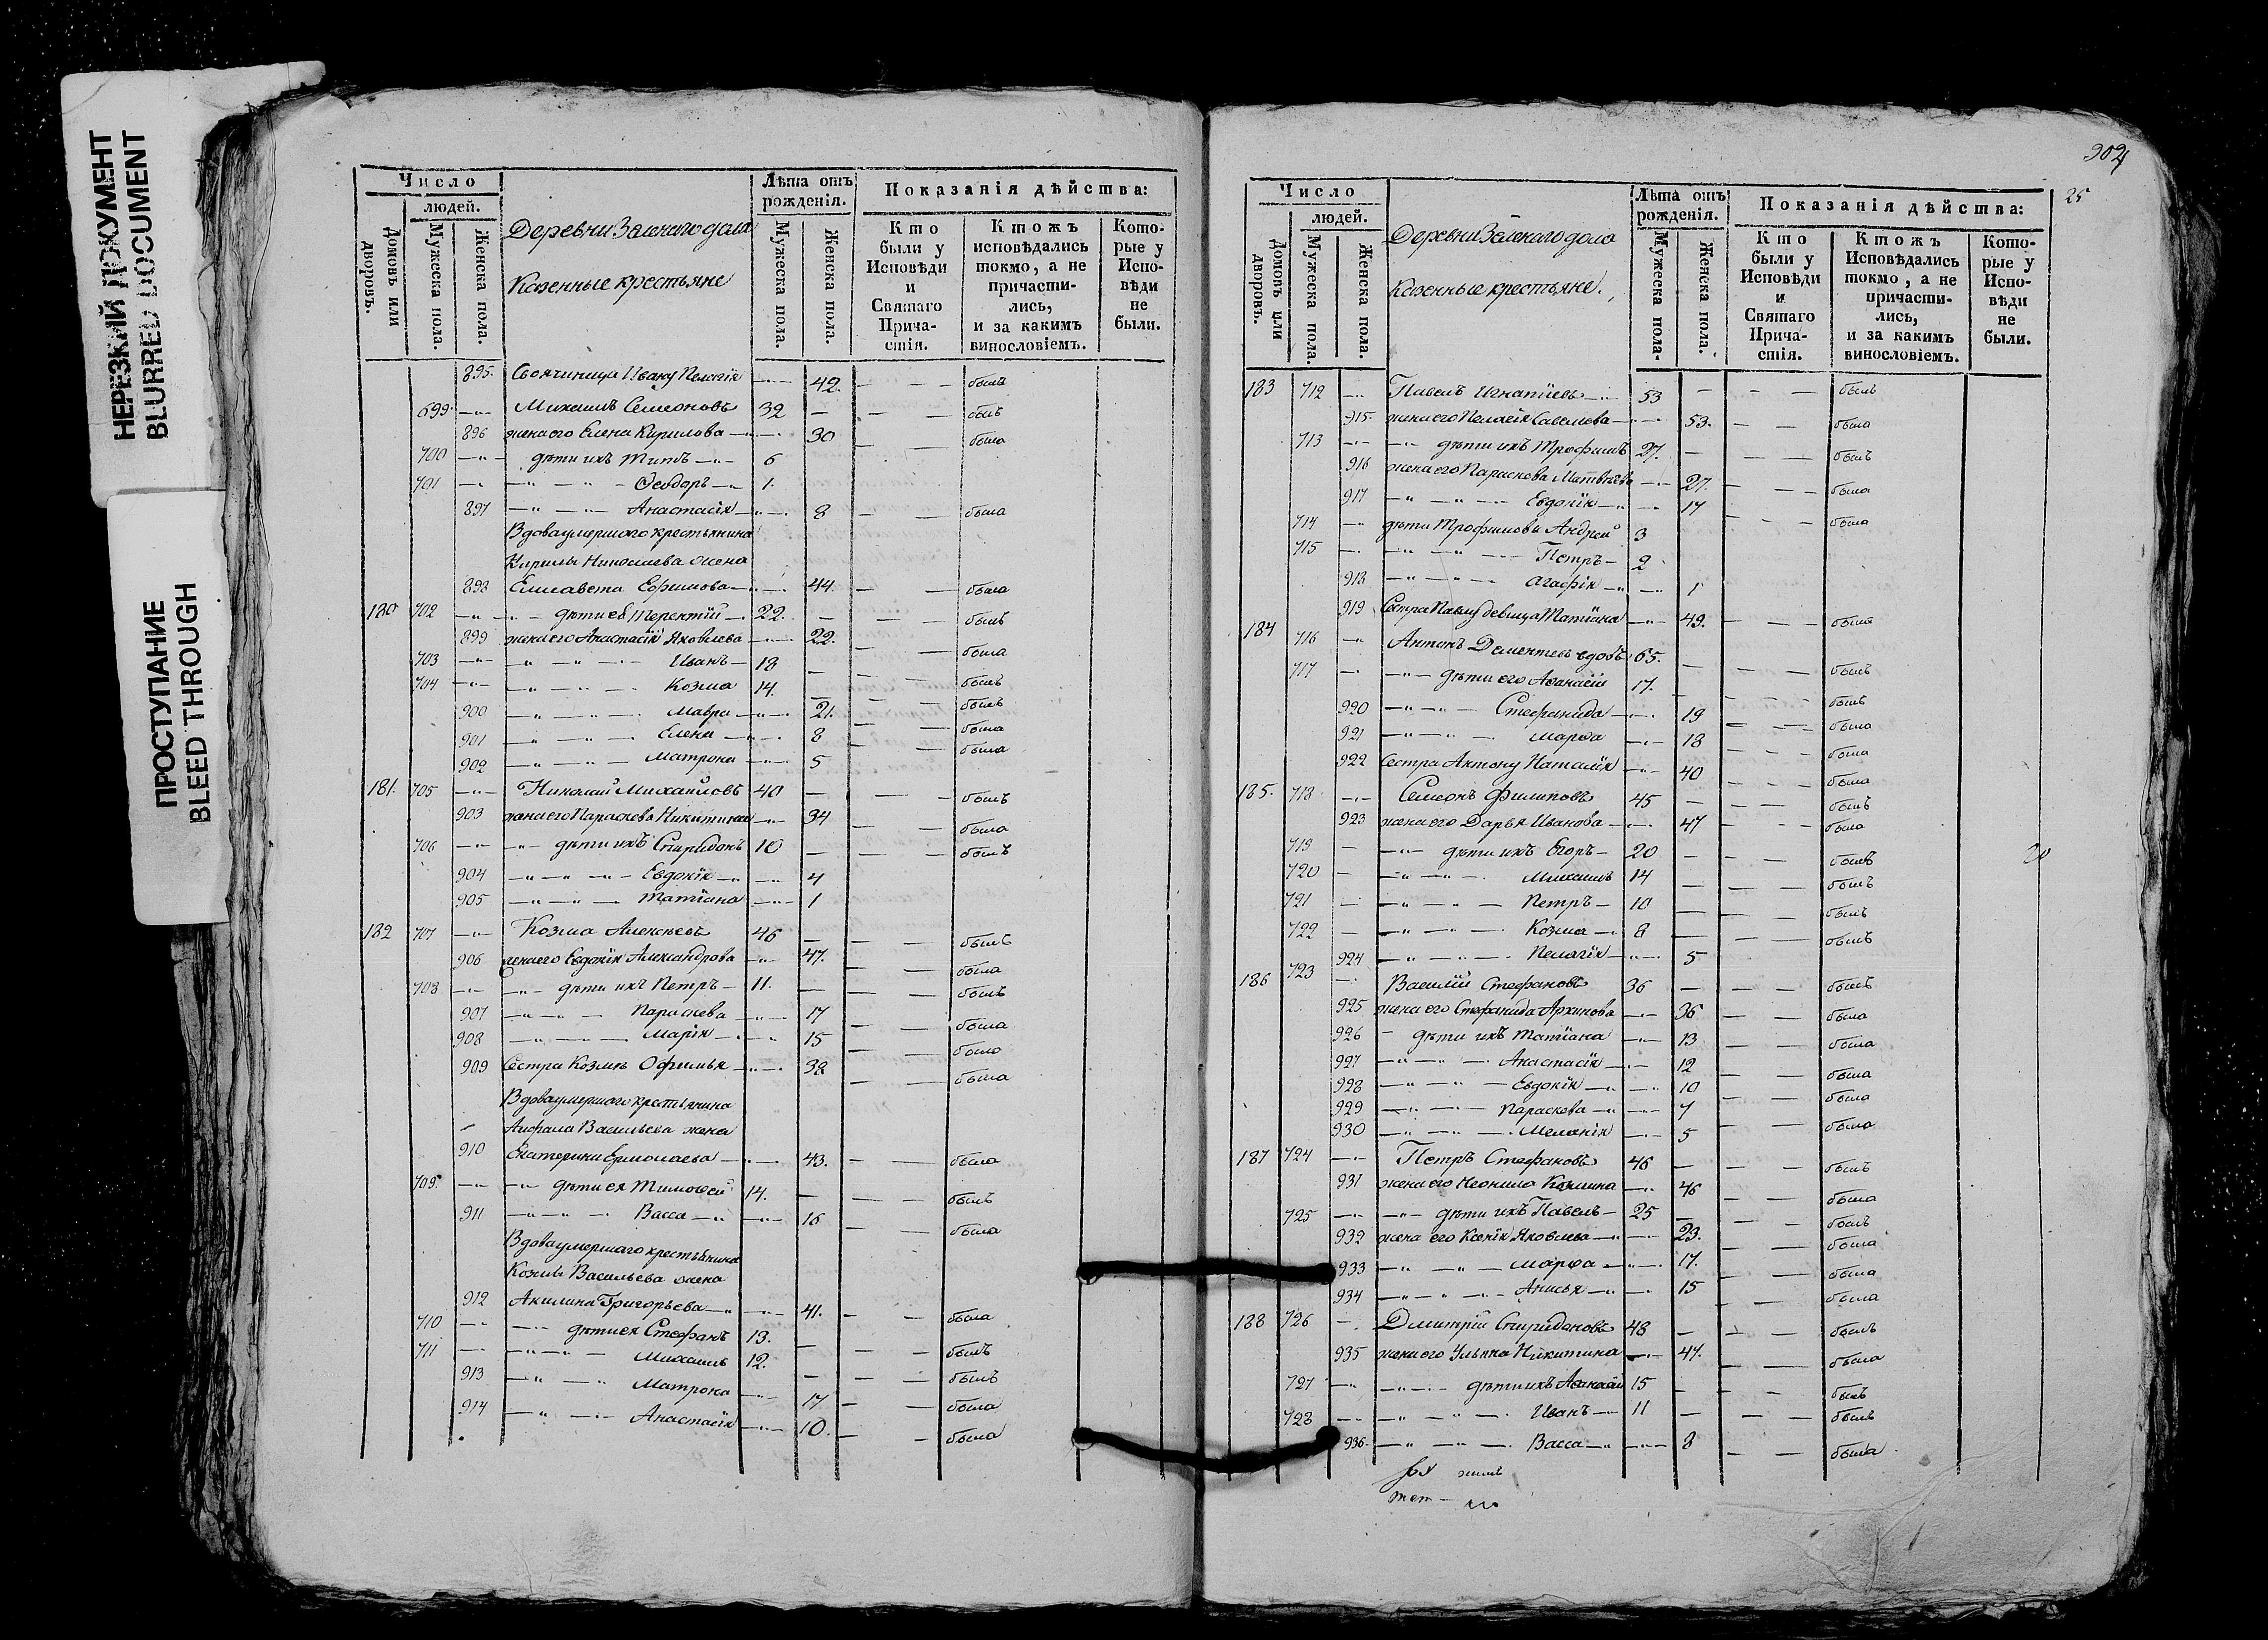 НЕРЕЗКИЙ ДОКУМЕНТ
BLURRED DOCUMENT
ПРОСТУПАНИЕ
BLEED THROUGH
Число
людей.
Домовъ или дворовъ.
Мужеска пола.
Женска пола.
Деревни Зеленаго дола
Казенные крестьяне
Лѣта отъ рожденія.
Мужеска пола.
Женска пола.
Показанія дѣйства:
Кто были у Исповѣди и Святаго Причастія.
Ктожъ исповѣдались токмо, а не причастились, и за какимъ винословіемъ.
Которые у Исповѣди не были.
895. Своячиница Ивану Пелагія 42. была
699. Михаилъ Семеоновъ 32 былъ
896 жена его Елена Кирилова 30 была
700 дѣти ихъ Титъ 6
701 Ѳеодоръ 1.
897 Анастасія 8 была
Вдова умершаго крестьянина
Кирилы Николаева жена
898 Елисавета Ефимова 44. была
180 702 дѣти её Терентій 22. былъ
899 жена его Анастасія Яковлева 22. была
703 Иванъ 18 былъ
704 Козма 14. былъ
900 Мавра 21. была
901 Елена 8 была
902 Матрона 5
181. 705 Николай Михайловъ 40 былъ
903 жена его Параскева Никитина 34 была
706 дѣти ихъ Спиридонъ 10 былъ
904 Евдокія 4
905 Татіана 1
182 707 Козма Алексѣевъ 46 былъ
906 жена его Евдокія Александрова 47. была
708 дѣти ихъ Петръ 11. былъ
907 Параскева 17 была
908 Марія 15 была
909 Сестра Козмѣ Офимья 38 была
Вдова умершаго крестьянина
Васильева жена
910 Екатерина Ермолаева 43. была
709. дѣти ея Тимоѳей 14. былъ
911 Васса 16 была
Вдова умершаго крестьянина
Козмы Васильева жена
912 Акилина Григорьева 41. была
710 дѣти ея Стефанъ 13. былъ
711 Михаилъ 12. былъ
913 Матрона 17 была
914 Анастасія 10. была
25
Число
людей.
Домовъ или дворовъ.
Мужеска пола.
Женска пола.
Деревни Зеленаго дола
Казенные крестьяне.
Лѣта отъ рожденія.
Мужеска пола.
Женска пола.
Показанія дѣйства:
Кто были у Исповѣди и Святаго Причастія.
Ктожъ Исповѣдались токмо, а не причастились, и за какимъ винословіемъ.
Которые у Исповѣди не были.
183 712 Павелъ Игнатіевъ 53 былъ
915. жена его Пелагія Савелова 53. была
713 дѣти ихъ Трофимъ 27. былъ
916 жена его Параскева Матвѣева 27. была
917 Евдокія 17 была
714 дѣти Трофимовы Андрей 3
715 Петръ 2
918 Агафія 1
919 Сестра Павлу девица Татіана 49. была
184 716 Антонъ Дементевъ вдовъ 65. былъ
717 дѣти его Аѳанасій 17. былъ
920 Стефанида 19 была
921 Марѳа 18 была
922 Сестра Антону Наталія 40 была
185. 718 Семеонъ Филиповъ 45 былъ
923 жена его Дарья Иванова 47 была
719 дѣти ихъ Егоръ 20 былъ
720 Михаилъ 14 былъ
721 Петръ 10 былъ
722 Козма 8 былъ
924 Пелагія 5
186 723 Василій Стефановъ 36 былъ
925 жена его Стефанида Архипова 36 была
926 дѣти ихъ Татіана 13 была
927 Анастасія 12 была
928 Евдокія 10 была
929 Параскева 7 была
930 Меланія 5
187 724 Петръ Стефановъ 46 былъ
931 жена его Неонила Козмина 46 была
725 дѣти ихъ Павелъ 25 былъ
932 жена его Ксенія Яковлева 23. была
933 Марѳа 17. была
934 Анисья 15 была
188 726 Дмитрій Спиридоновъ 48 былъ
935 жена его Ульяна Никитина 47. была
727 дѣти ихъ Аѳанасій 15 былъ
728 Иванъ 11 былъ
936. Васса 8 была